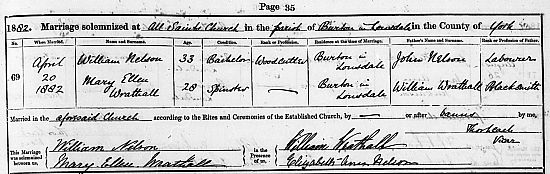 Page 35
1882. Marriage solemnized at All Saints Church in the parish of Burton in Lonsdale in the County of York
No. When Married. Name and Surname. Age. Condition. Rank or Profession. Residence at the time of Marriage. Father's Name and Surname. Rank or Profession of Father.
69 April 20 1882 William Nelson 33 Bachelor Woodcutter Burton in Lonsdale John Nelson Labourer
Mary Ellen Wrathall 28 Spinster — Burton in Lonsdale William Wrathall Blacksmith
Married in the aforesaid Church according to the Rites and Ceremonies of the Established Church, by — or after banns by me,
Vicar
This Marriage was solemnized between us, William Nelson Mary Ellen Wrathall in the Presence of us, William Wrathall Elizabeth Ann Nelson